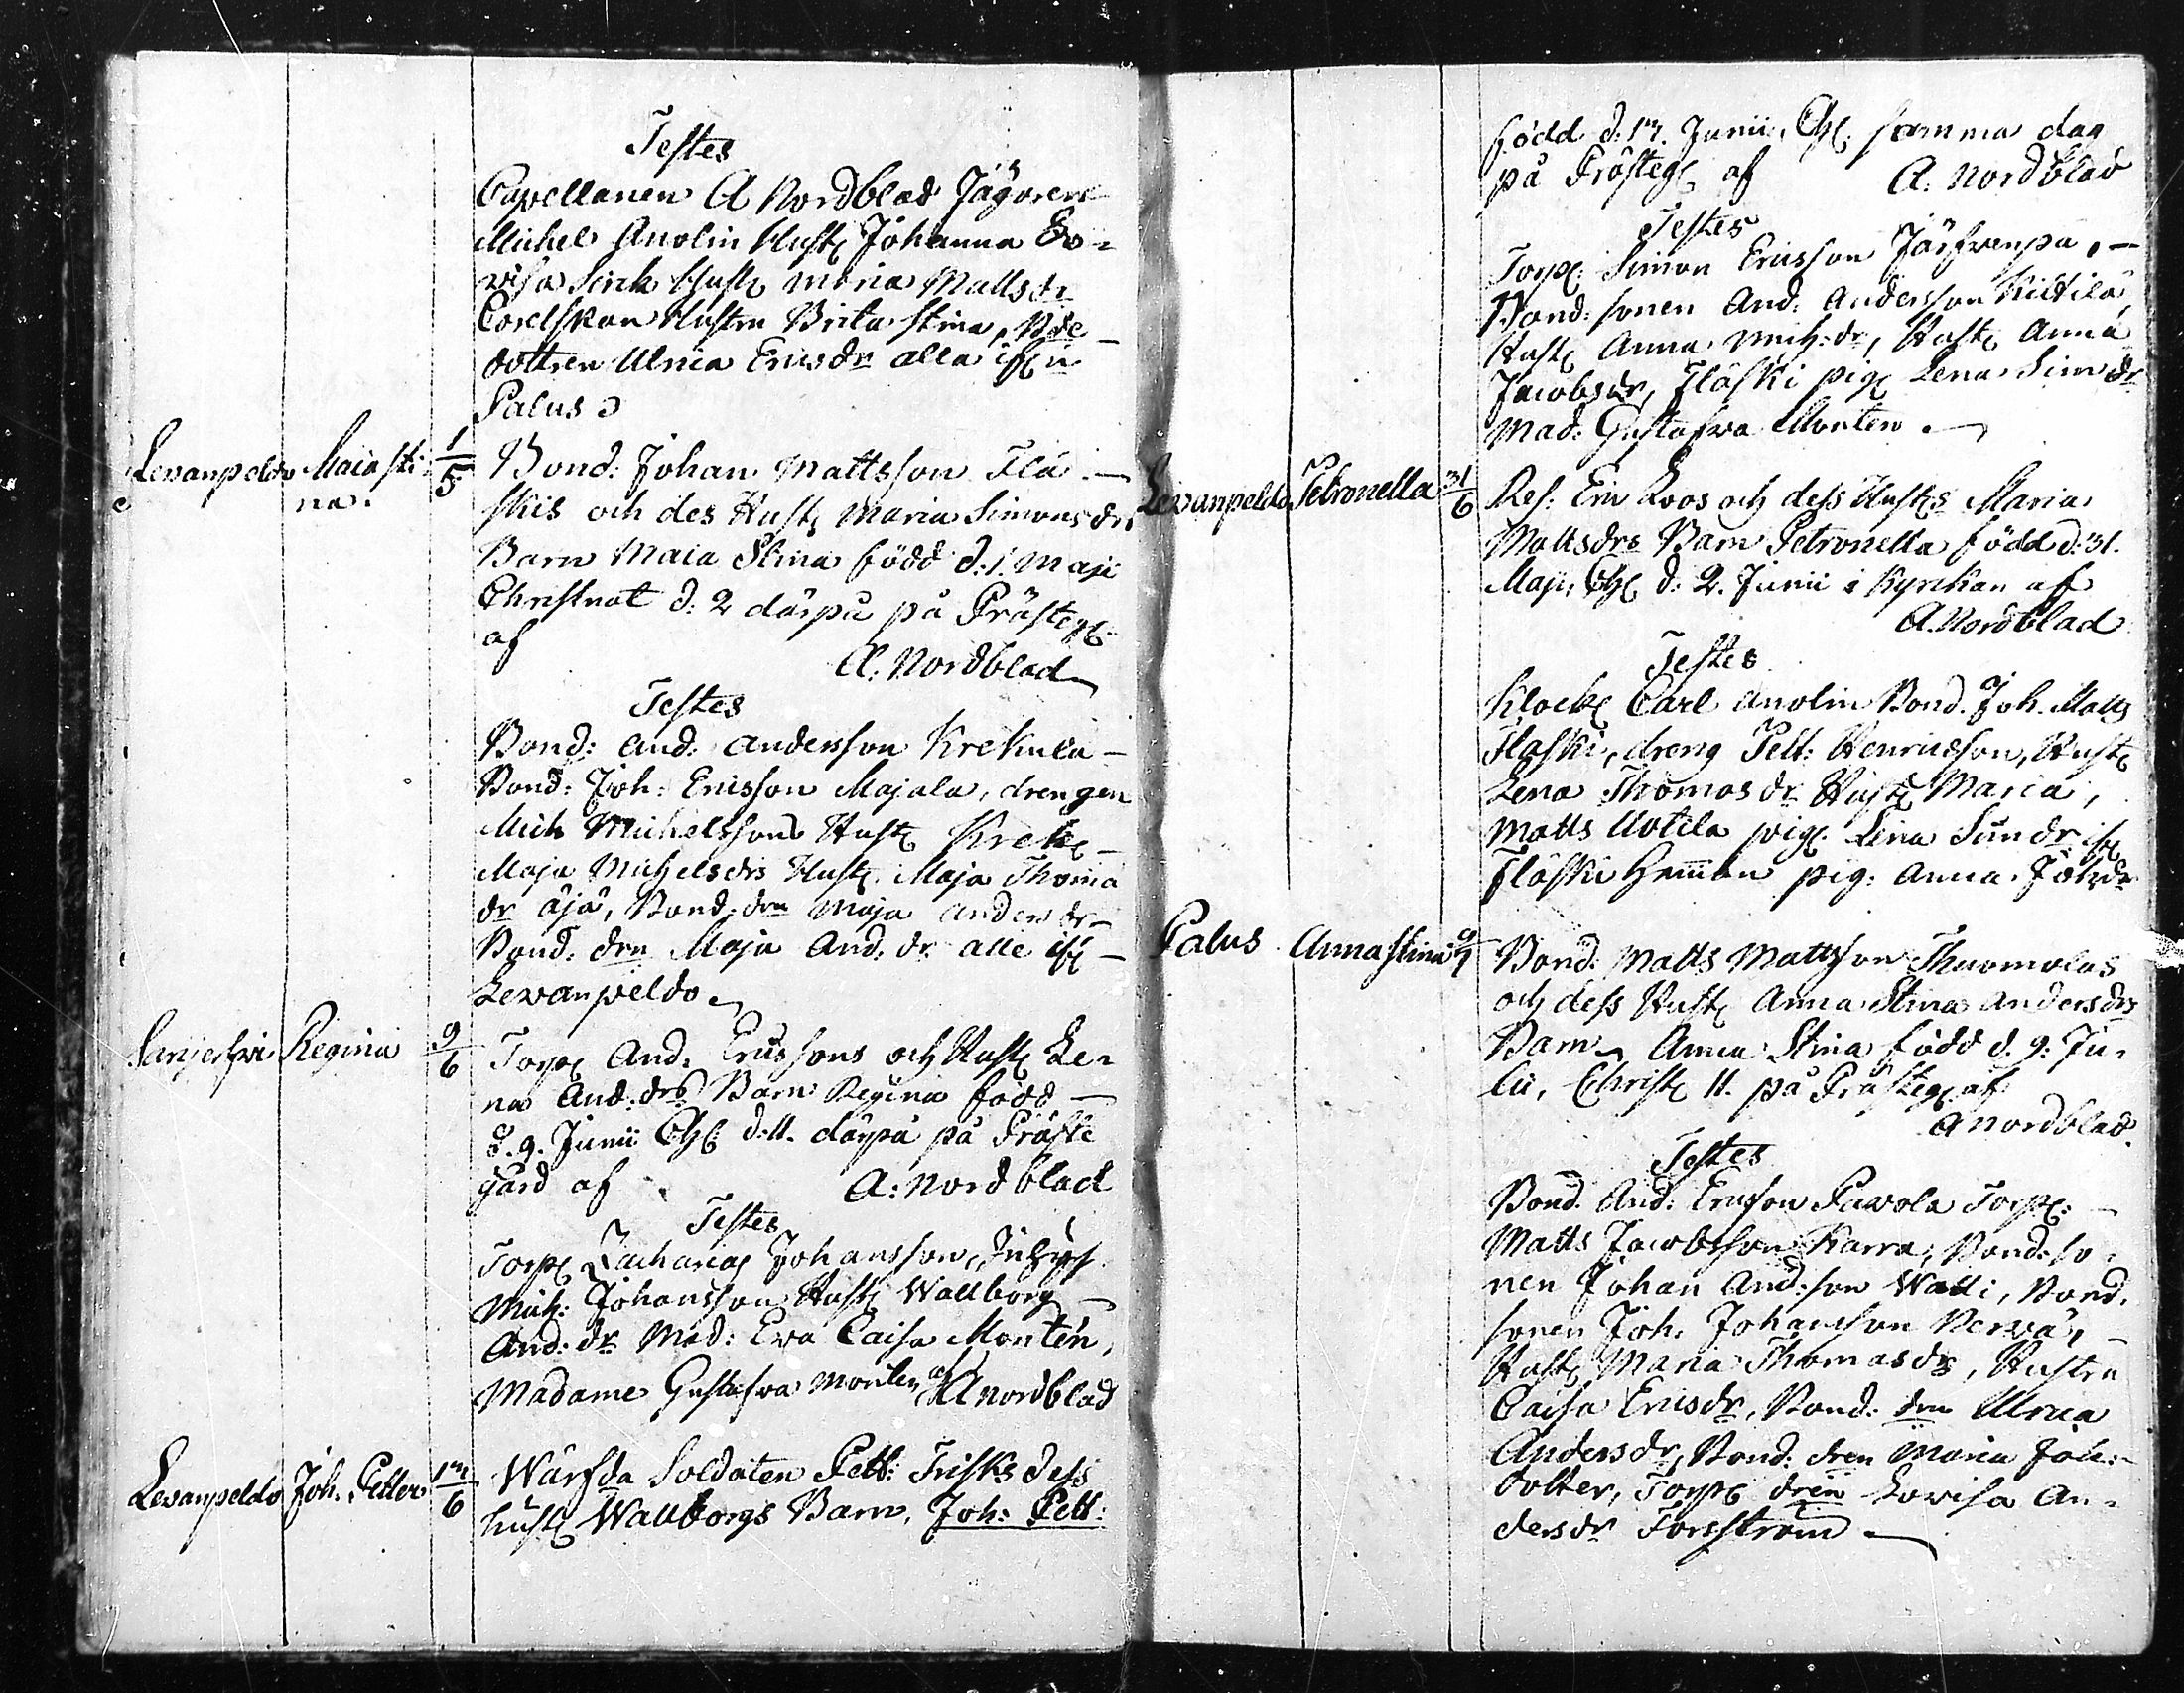 Testes
Capellanen A Nordblad Jägoren
Michel Anolin Hust Johanna Lo-
visa Sirck Hust Maria Mattsdr
Hustru Brita Stina, Bde
dottren Ulrica Ericsdr alla if:n
Palus
Levanpeldo Maia Sti- 1/5 Bond: Johan Mattsson Flä-
na. skis och des Hust Maria Simonsdrs
Barn Maia Stina född d: 1. Maji
Christnat d: 2 därpå på Prästeg:
af
A. Nordblad
Testes
Bond: And: Andersson Krekula-
Bond: Joh: Ericsson Majala, drengen
Mich Michelssons Hust Krek
Maja Michelsdrs Hust Maja Thoma
dr äjä, Bond. drn Maja Andersdr-
Bond: drn Maja And: dr alle if:-
Levanpeldo
Regina 9/6 Torp: And: Ericssons och Hust Le-
na And: drs Barn Regina född-
d. 9. Junii Ch: d: 11. därpå på Präste
gård af A: Nordblad
Testes
Torp: Zacharias Johansson, Inhys
Mich: Johansson Hust Wallborg
And: dr Mad: Ewa Caisa Montén,
Madame Gustafva Monten af A Nordblad
Levanpeldo Joh. Petter 17/6 Wärfda Soldaten Pett: Frisks dess
hust Wallborgs Barn, Joh: Pett:
född d: 17. Junii, Ch: samma dag
på Prästeg: af A: Nordblad
Testes
Torp: Simon Ericsson Järfvenpä,-
Bond: sonen And: Andersson Kittilä
Hust Anna Mich: dr, Hust Anna
Jacobsdr, Fläski pig: Lena Simdr
Mad: Gustafva Monten
Levanpeldo Petronella 31/6 Ref: Eric Roos och dess Husts Maria
Mattsdrs Barn Petronella född d: 31.
Maji, Ch: d: 2. Junii i Kyrkan af
A. Nordblad
Testes
Klock: Carl Anolin Bond. Joh. Matts
Fläski, dreng Pett: Henricsson, Hust
Lena Thomasdr Hust Maria,
Matts Uotila pig: Lena Simdr if:
Fläski Hemman pig: Anna Johsdr
Palus Anna Stina 9/7 Bond: Matts Mattsson Thuomolas
och dess Hust Anna Stina Andersdrs
Barn Anna Stina född d. 9: Ju-
lii, Christ: 11. på Prästeg: af
A Nordblad.
Testes
Bond. And: Ericsson Pavola Torp:-
Matts Jacobsson Karra, Bond: so-
nen Johan And: son Walli, Bond.
sonen Joh: Johansson Nervä,-
Hust Maria Thomasdr, Hustru
Caisa Ericsdr, Bond: drn Ulrica
Andersdr, Bond: dren Maria Joh:-
dotter, Torp: dren Lovisa An-
dersdr Forsström